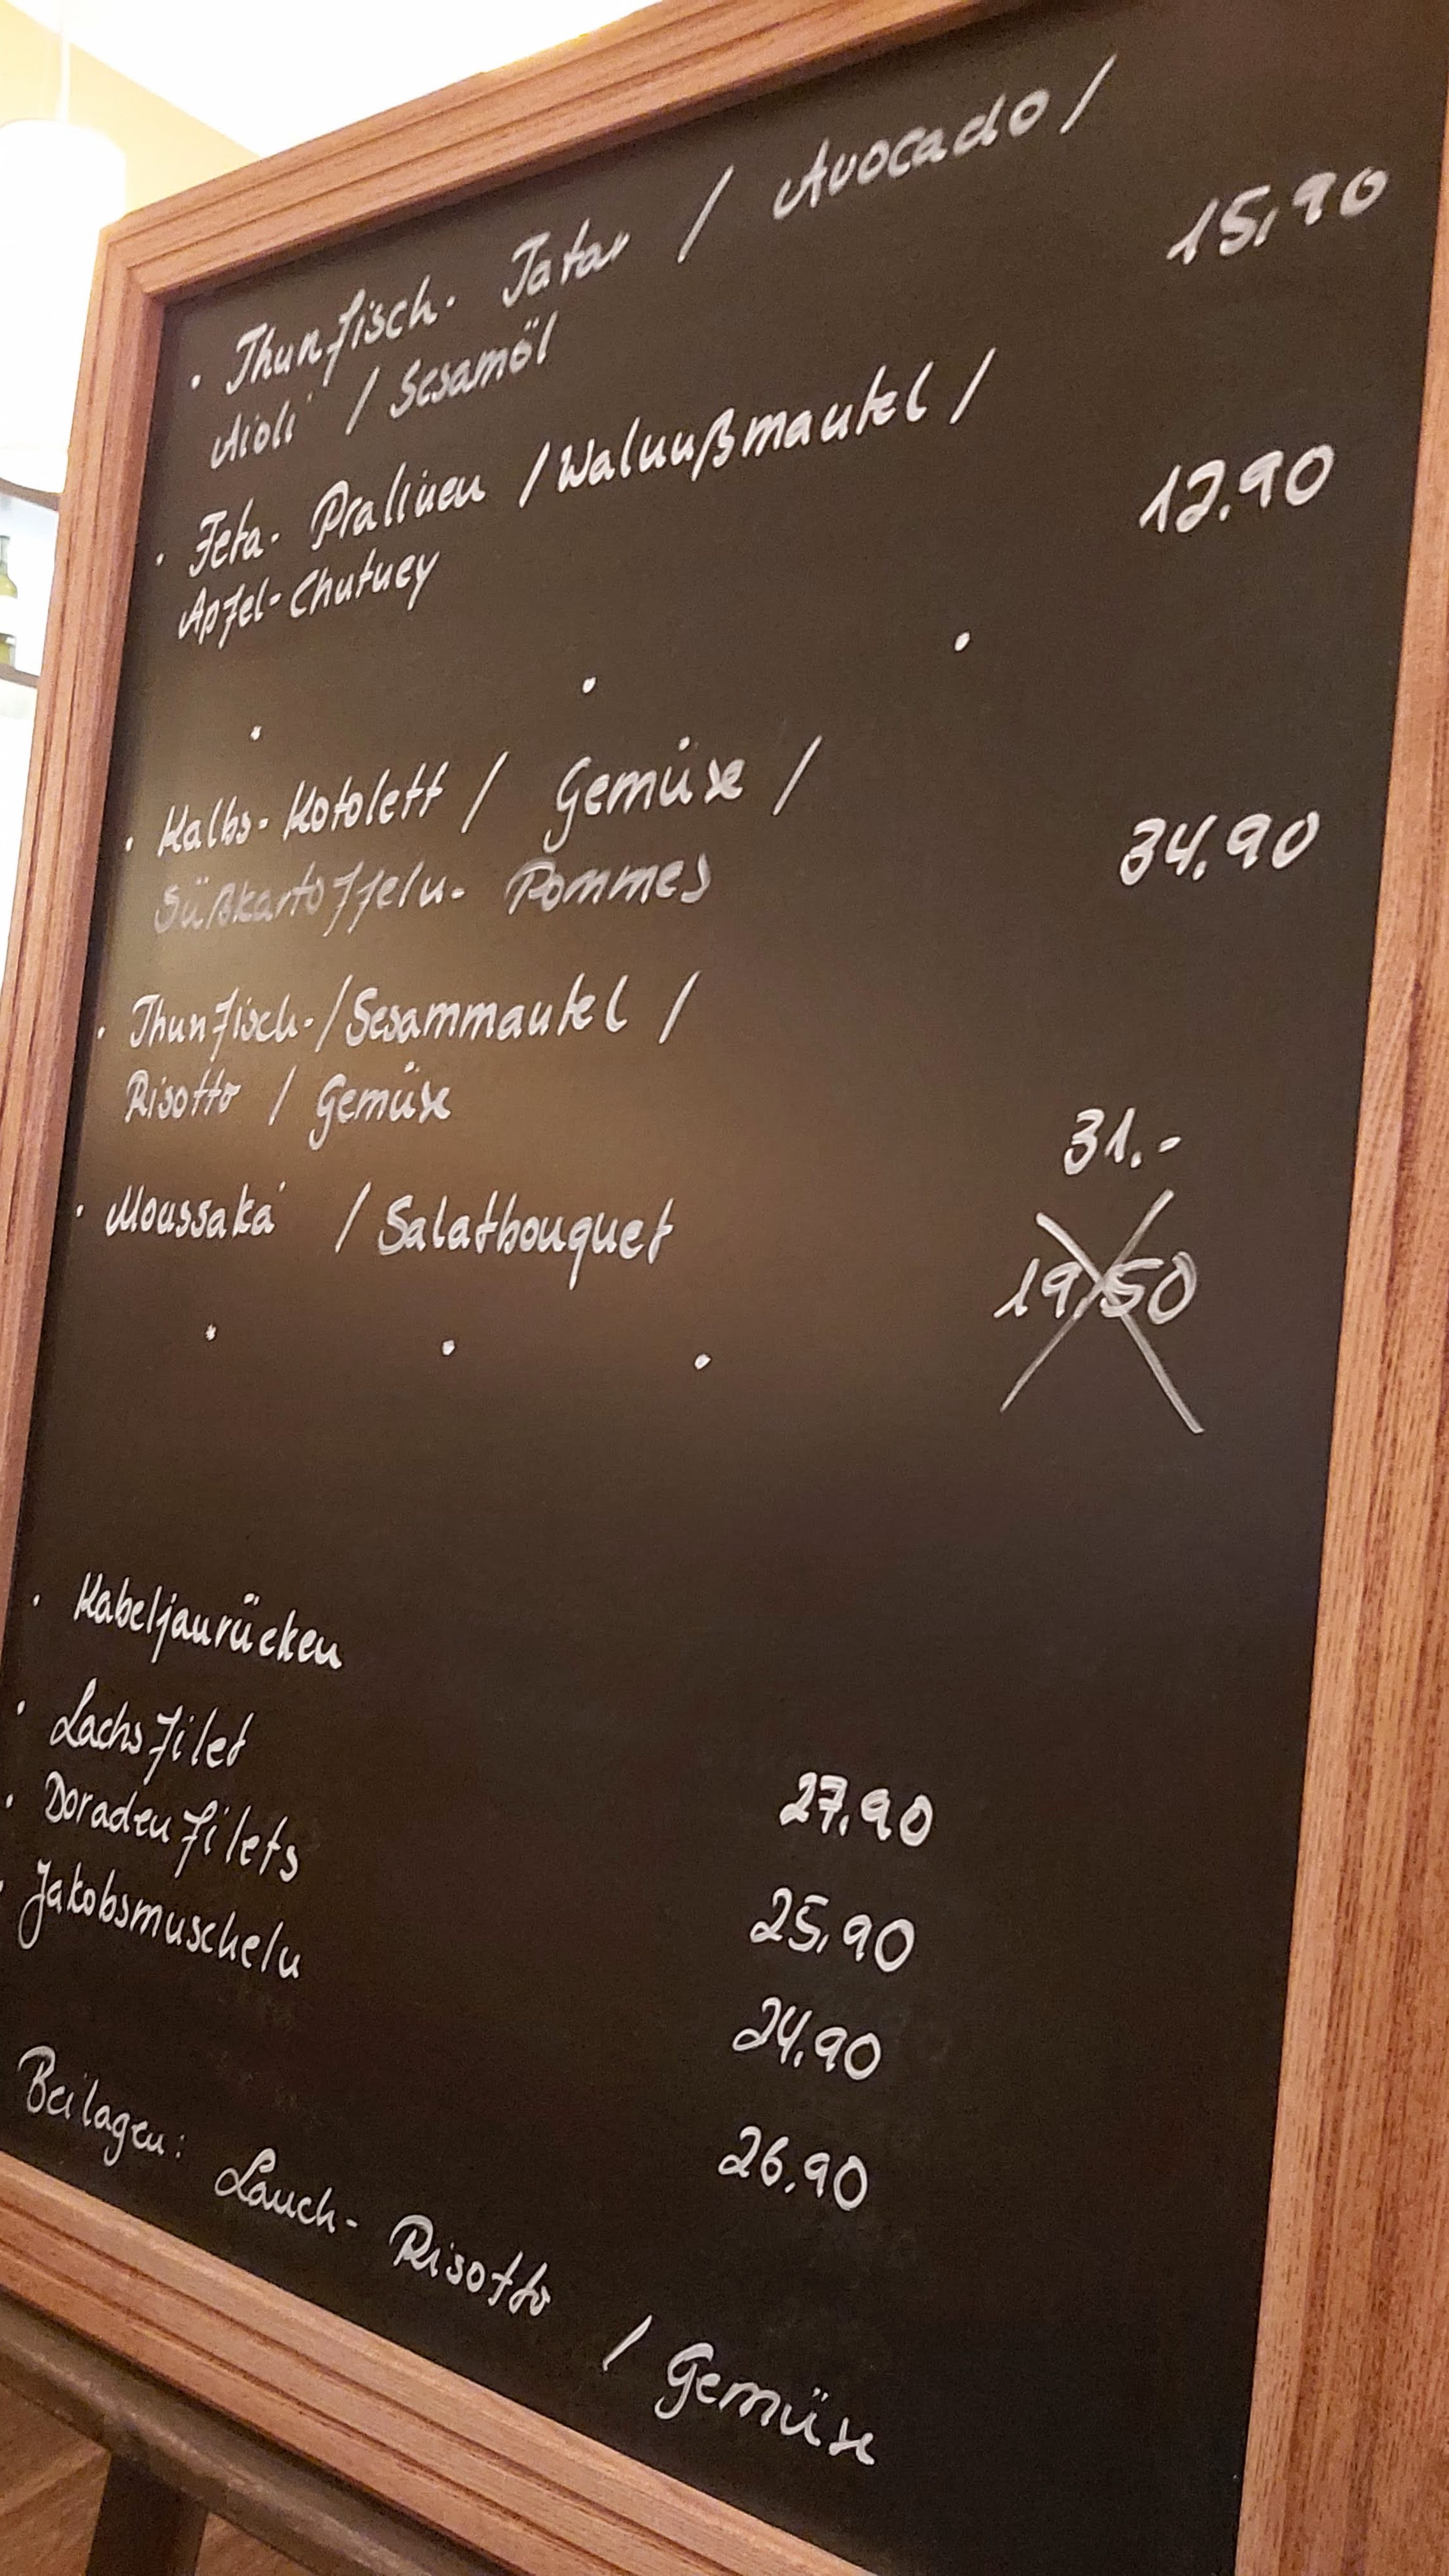 · Thunfisch- Tatar / Avocado /
Aioli / Sesamöl 15,90
· Feta- Pralinen / Walnußmantel /
Apfel-Chutney 12.90
· Kalbs-Kotolett / Gemüse /
Süßkartoffeln- Pommes 34.90
· Thunfisch-/Sesammantel /
Risotto / Gemüse 31.-
· Moussaká / Salatbouquet 19,50
· Kabeljaurücken 27,90
· Lachsfilet 25,90
· Doradenfilets 24,90
· Jakobsmuscheln 26,90
Beilagen: Lauch- Risotto / Gemüse